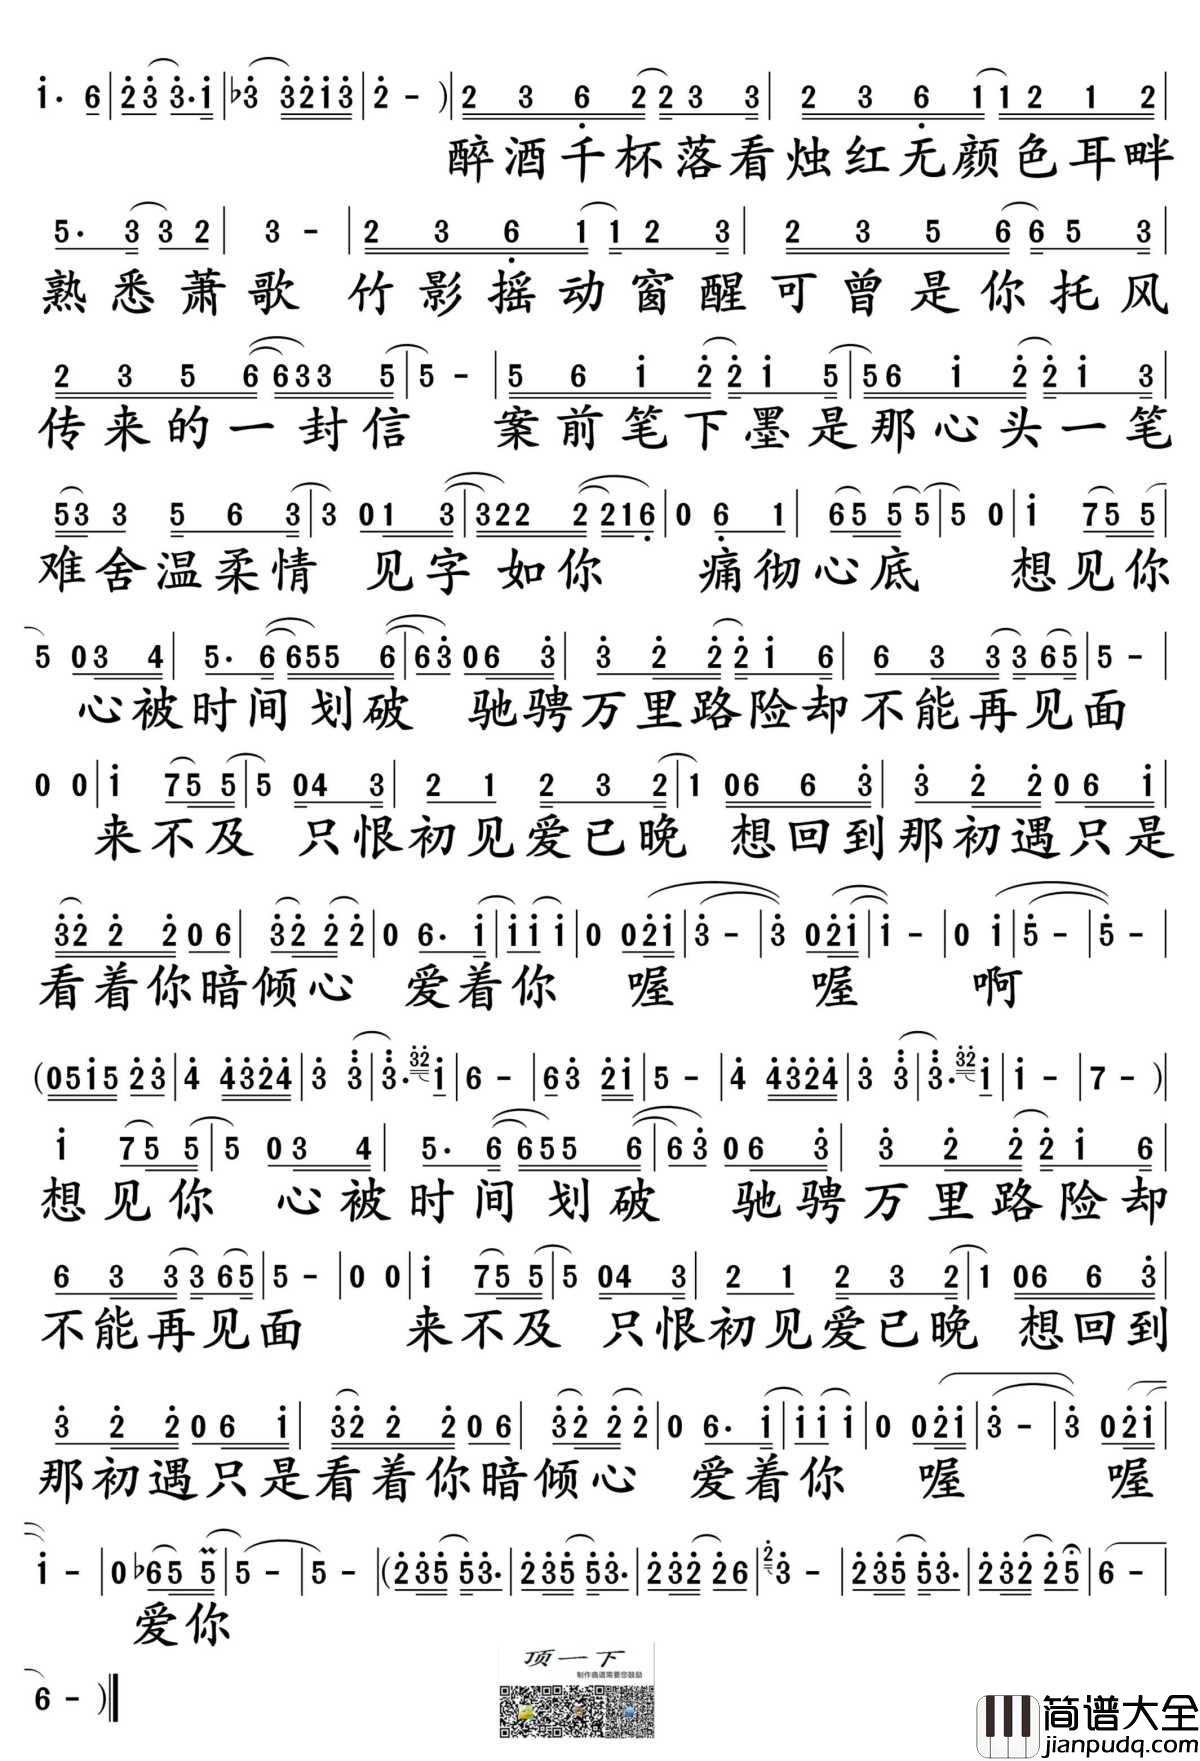 i· 6 | 2 3 3·i | ♭3 3 2 i 3 | 2 - ) | 2 3 6 2 | 2 3 3 | 2 3 6 1 | 1 2 1 2 |
醉酒千杯落看烛红无颜色耳畔
5· 3 3 2 | 3 - | 2 3 6 1 1 2 3 | 2 3 5 6 6 5 3 |
熟悉萧歌 竹影摇动窗醒可曾是你托风
2 3 5 6 6 3 3 5 | 5 - | 5 6 i 2 2 i 5 | 5 6 i 2 2 i 3 |
传来的一封信 案前笔下墨是那心头一笔
5 3 3 5 6 3 | 3 0 1 3 | 3 2 2 2 2 1 6 | 0 6 1 | 6 5 5 5 | 5 0 | i 7 5 5 |
难舍温柔情 见字如你 痛彻心底 想见你
5 0 3 4 | 5· 6 6 5 5 6 | 6 3 0 6 3 | 3 2 2 2 i 6 | 6 3 3 3 6 5 | 5 - |
心被时间划破 驰骋万里路险却不能再见面
0 0 | i 7 5 5 | 5 0 4 3 | 2 1 2 3 2 | 1 0 6 6 3 | 3 2 2 0 6 i |
来不及 只恨初见爱已晚 想回到那初遇只是
3 2 2 2 0 6 | 3 2 2 2 | 0 6· i | i i i | 0 0 2 i | 3 - | 3 0 2 i | i - | 0 i | 5 - | 5 - |
看着你暗倾心 爱着你 喔 喔 啊
( 0 5 i 5 2 3 | 4 4 3 2 4 | 3 3 | 3· 32 i | 6 - | 6 3 2 i | 5 - | 4 4 3 2 4 | 3 3 | 3· 32 i | i - | 7 - )
i 7 5 5 | 5 0 3 4 | 5· 6 6 5 5 6 | 6 3 0 6 3 | 3 2 2 2 i 6 |
想见你 心被时间划破 驰骋万里路险却
6 3 3 3 6 5 | 5 - | 0 0 | i 7 5 5 | 5 0 4 3 | 2 1 2 3 2 | 1 0 6 6 3 |
不能再见面 来不及 只恨初见爱已晚 想回到
3 2 2 0 6 i | 3 2 2 2 0 6 | 3 2 2 2 | 0 6· i | i i i | 0 0 2 i | 3 - | 3 0 2 i |
那初遇只是看着你暗倾心 爱着你 喔 喔
i - | 0 ♭6 5 5 | 5 - | 5 - | ( 2 3 5 5 3· | 2 3 5 5 3· | 2 3 2 2 6 | 2 3 - | 2 3 5 5 3· | 2 3 2 2 5 | 6 - |
爱你
顶一下
制作曲谱需要您鼓励
6 - )
简谱大全
jianpudq.com